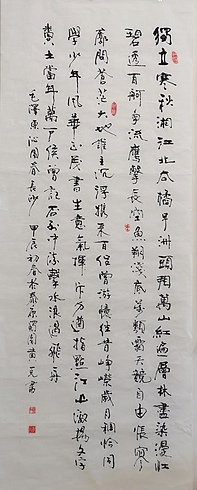 獨立寒秋湘江北去橘子洲頭看萬山紅遍層林盡染漫江
碧透百舸爭流鷹擊長空魚翔淺底萬類霜天競自由悵寥
廓問蒼茫大地誰主沉浮攜來百侶曾游憶往昔崢嶸歲月稠恰同
學少年風華正茂書生意氣揮斥方遒指點江山激揚文字
糞土當年萬戶侯曾記否到中流擊水浪遏飛舟
毛澤東沁園春長沙 甲辰初春於